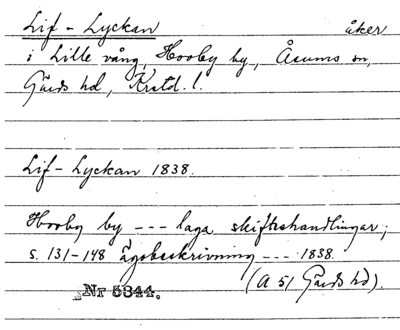 Lif-Lyckan åker
i Lille vång, Hooby by, Åsums sn,
Gärds hd, Krstd. l.
Lif-Lyckan 1838.
Hooby by --- laga skifteshandlingar;
s. 131-148 ägobeskrivning --- 1838.
(A 51 Gärds hd).
Nr 5344.